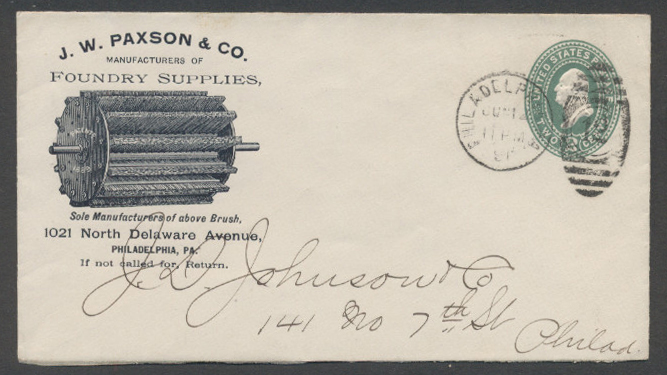 J. W. PAXSON & CO.
MANUFACTURERS OF
FOUNDRY SUPPLIES,
Sole Manufacturers of above Brush,
1021 North Delaware Avenue,
PHILADELPHIA, PA.
If not called for, Return.
PHILADELPH
JUN
11 PM
UNITED STATES
TWO
J. D. Johnson & Co
141 No 7th St
Philad.